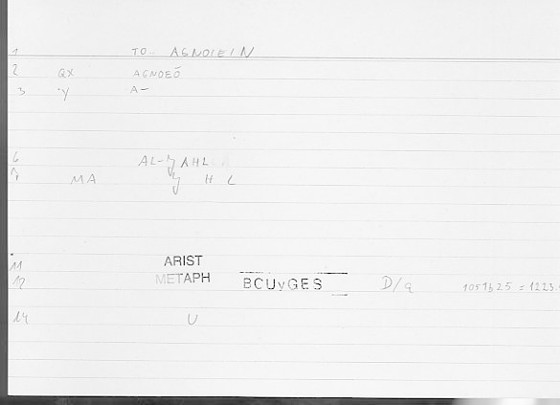 1 TO- AGNOIEIN
2 QX AGNOEŌ
3 'Y A-
6 AL-Y AHL
7 MA Y H L
11 ARIST
12 METAPH BCUyGES D/q 1051b25 = 1223.
14 U